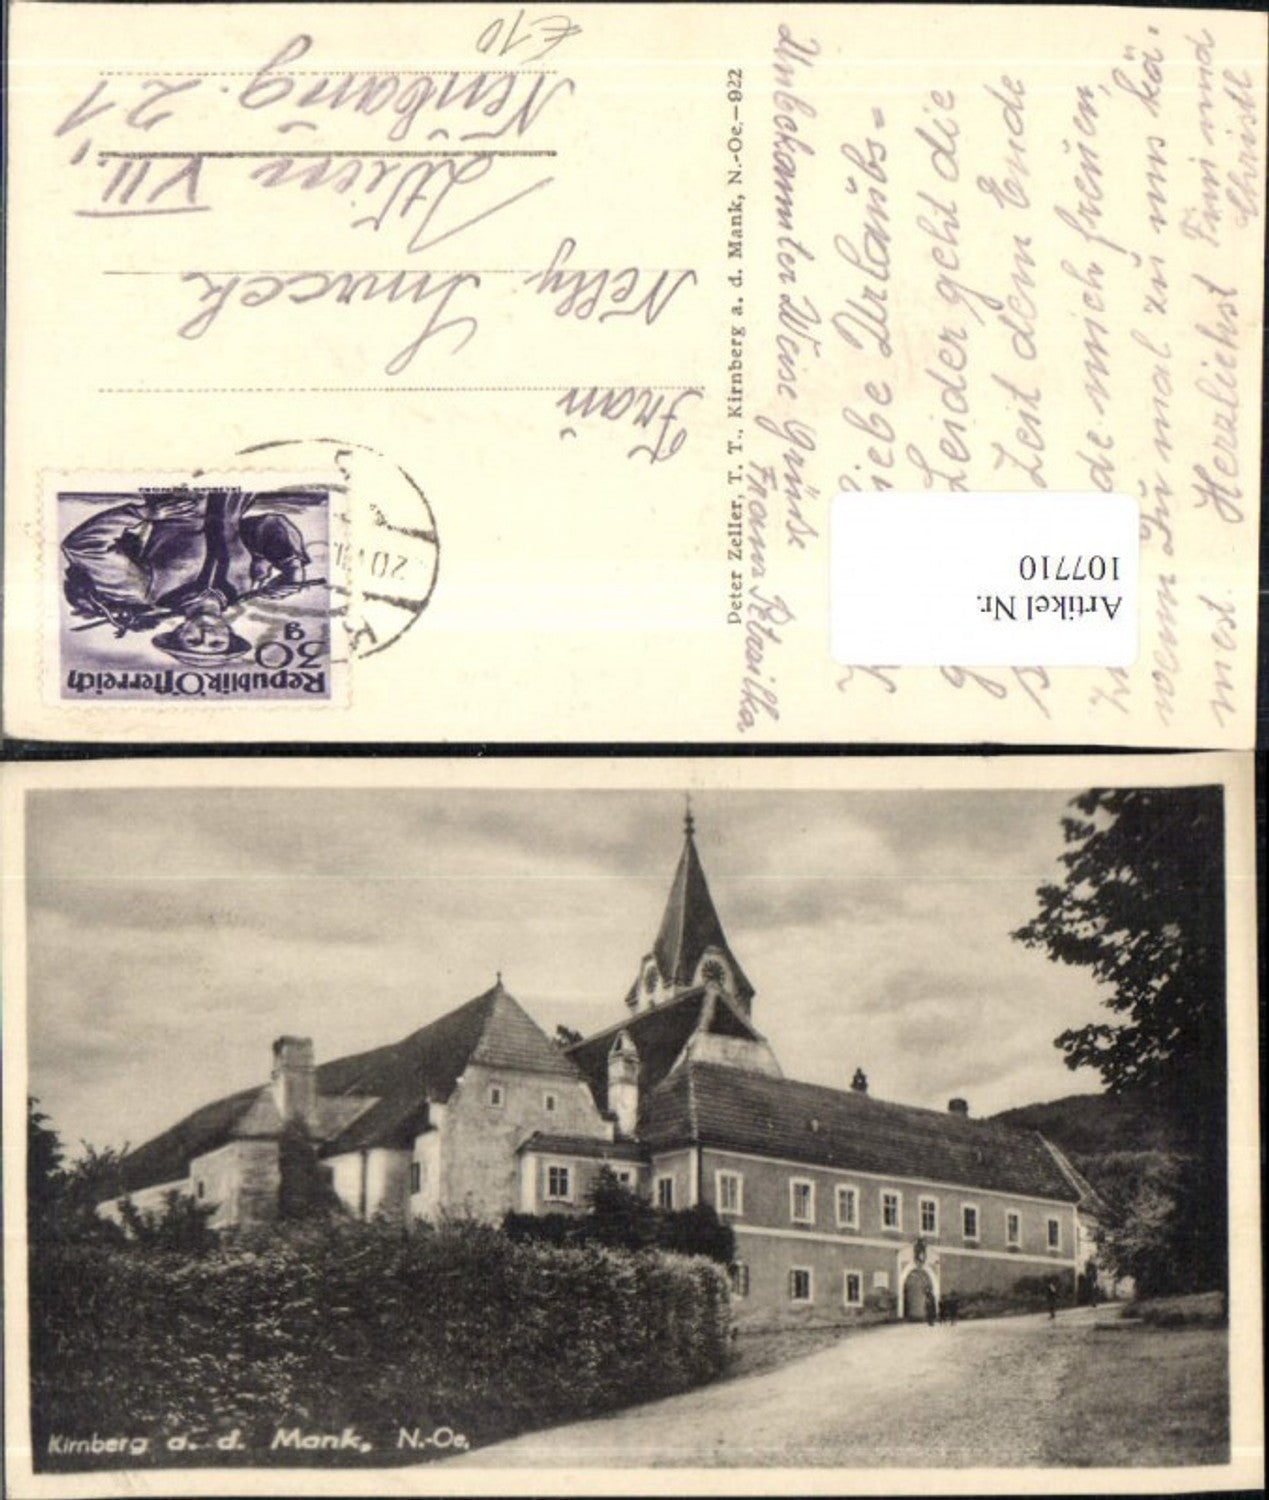 €10
Frau
Nelly Smrcek
Wien VII.,
Neubaug. 21
Republik Österreich
30
g
Peter Zeller, T. T., Kirnberg a. d. Mank, N.-Oe.—922
Unbekannter Weise Grüsse
Liebe Urlaubs-
Leider geht die
Zeit dem Ende
de mich freuen,
wenn Du mal zu uns kä-
mest. Herzlichst Fini und
Christl
Artikel Nr.
107710
Kirnberg a. d. Mank, N.-Oe.